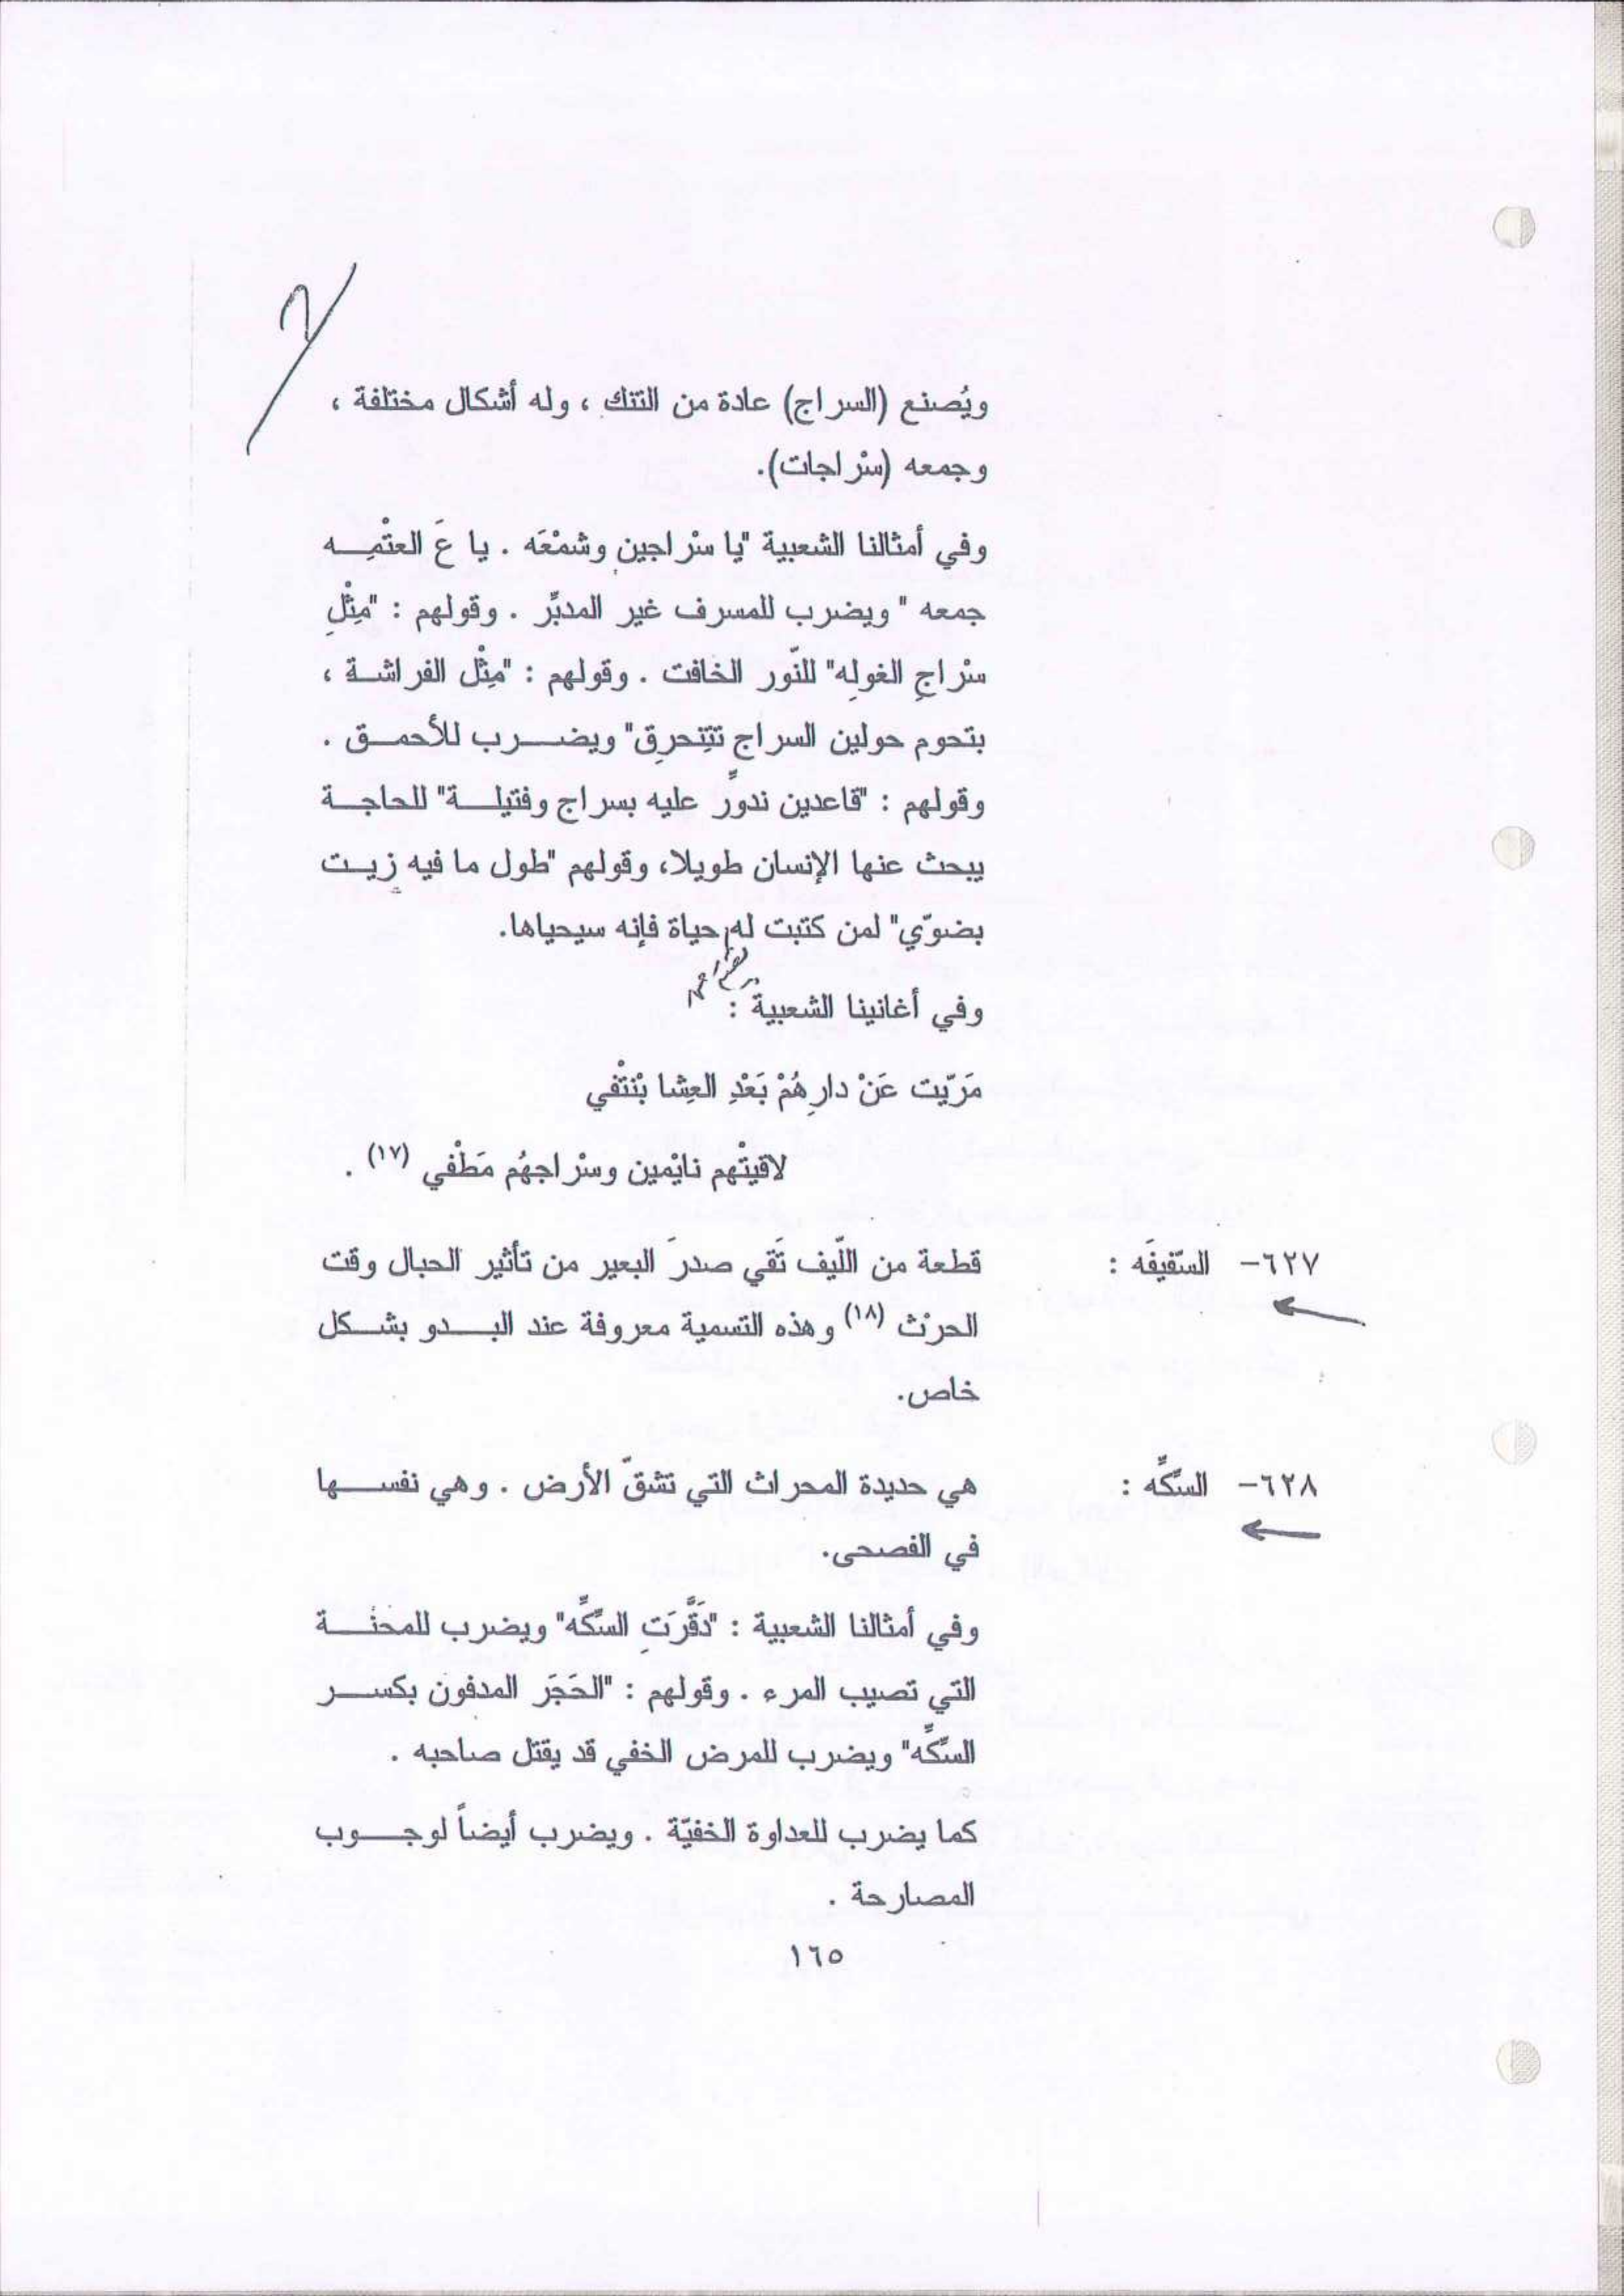 ويُصنع (السراج) عادة من التنك ، وله أشكال مختلفة ،
وجمعه (سْراجات).
وفي أمثالنا الشعبية "يا سْراجين وشمْعَه . يا عَ العتْمِـــه
جمعه " ويضرب للمسرف غير المدبِّر . وقولهم : "مِثْلِ
سْراجِ الغولِه" للنّور الخافت . وقولهم : "مِثْل الفراشــة ،
بتحوم حولين السراج تتِنحرِق" ويضـــرب للأحمــق .
وقولهم : "قاعدين ندوِّر عليه بسراج وفتيلـــة" للحاجــة
يبحث عنها الإنسان طويلا، وقولهم "طول ما فيه زيــت
بضوّي" لمن كتبت له حياة فإنه سيحياها.
وفي أغانينا الشعبية :
مَرّيت عَنْ دارِهُمْ بَعْدِ العِشا بْنتْفي
لاقيتْهم نايْمين وسْراجهُم مَطْفي (١٧) .
٦٢٧- السّفيفَه : قطعة من اللّيف تَقي صدرَ البعير من تأثير الحبال وقت
الحرْث (١٨) وهذه التسمية معروفة عند البـــدو بشــكل
خاص.
٦٢٨- السِّكِّه : هي حديدة المحراث التي تشقّ الأرض . وهي نفســـها
في الفصحى.
وفي أمثالنا الشعبية : "دَقَّرَتِ السِّكِّه" ويضرب للمحنـــة
التي تصيب المرء . وقولهم : "الحَجَر المدفون بكســـر
السِّكِّه" ويضرب للمرض الخفي قد يقتل صاحبه .
كما يضرب للعداوة الخفيّة . ويضرب أيضاً لوجـــوب
المصارحة .
١٦٥